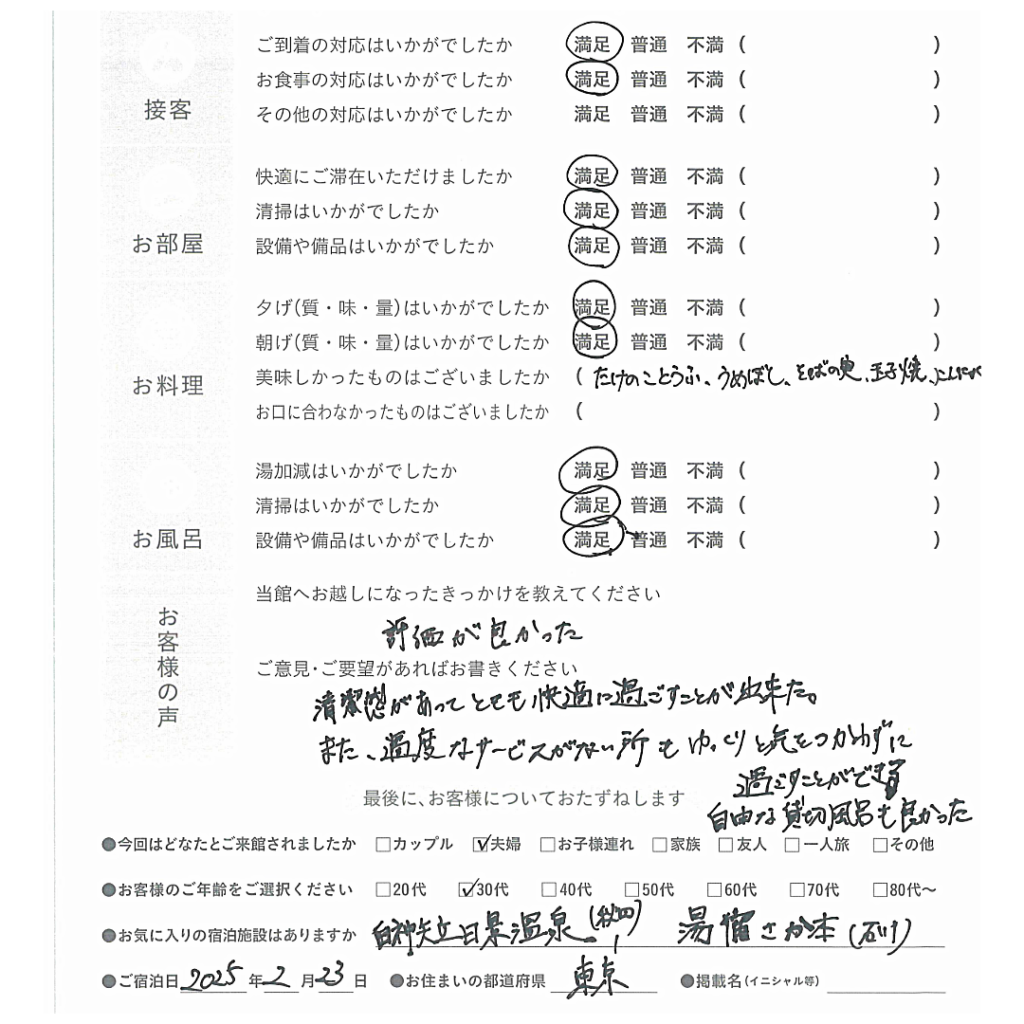 ご到着の対応はいかがでしたか 満足 普通 不満 ( )
お食事の対応はいかがでしたか 満足 普通 不満 ( )
接客
その他の対応はいかがでしたか 満足 普通 不満 ( )
快適にご滞在いただけましたか 満足 普通 不満 ( )
清掃はいかがでしたか 満足 普通 不満 ( )
お部屋
設備や備品はいかがでしたか 満足 普通 不満 ( )
夕げ(質・味・量)はいかがでしたか 満足 普通 不満 ( )
朝げ(質・味・量)はいかがでしたか 満足 普通 不満 ( )
お料理
美味しかったものはございましたか ( たけのことうふ、うめぼし、そばの実、玉子焼、
お口に合わなかったものはございましたか ( )
湯加減はいかがでしたか 満足 普通 不満 ( )
清掃はいかがでしたか 満足 普通 不満 ( )
お風呂
設備や備品はいかがでしたか 満足 普通 不満 ( )
お客様の声
当館へお越しになったきっかけを教えてください
評価が良かった
ご意見・ご要望があればお書きください
清潔感があってとても快適に過ごすことが出来た。
また、過度なサービスがない所もゆっくりと気をつかわずに
過ごすことができ
自由な貸切風呂も良かった
最後に、お客様についておたずねします
●今回はどなたとご来館されましたか □カップル ☑夫婦 □お子様連れ □家族 □友人 □一人旅 □その他
●お客様のご年齢をご選択ください □20代 ☑30代 □40代 □50代 □60代 □70代 □80代〜
●お気に入りの宿泊施設はありますか 白神矢立日景温泉(秋田) 湯宿さか本(石川)
●ご宿泊日 2025 年 2 月 23 日 ●お住まいの都道府県 東京 ●掲載名(イニシャル等)